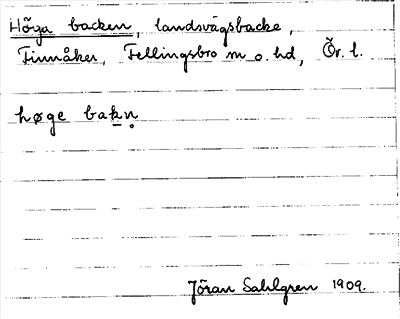 Höga backen, landsvägsbacke,
Finnåker, Fellingsbro m o. hd, Ör. l.
høge bakn̥
Jöran Sahlgren 1909.